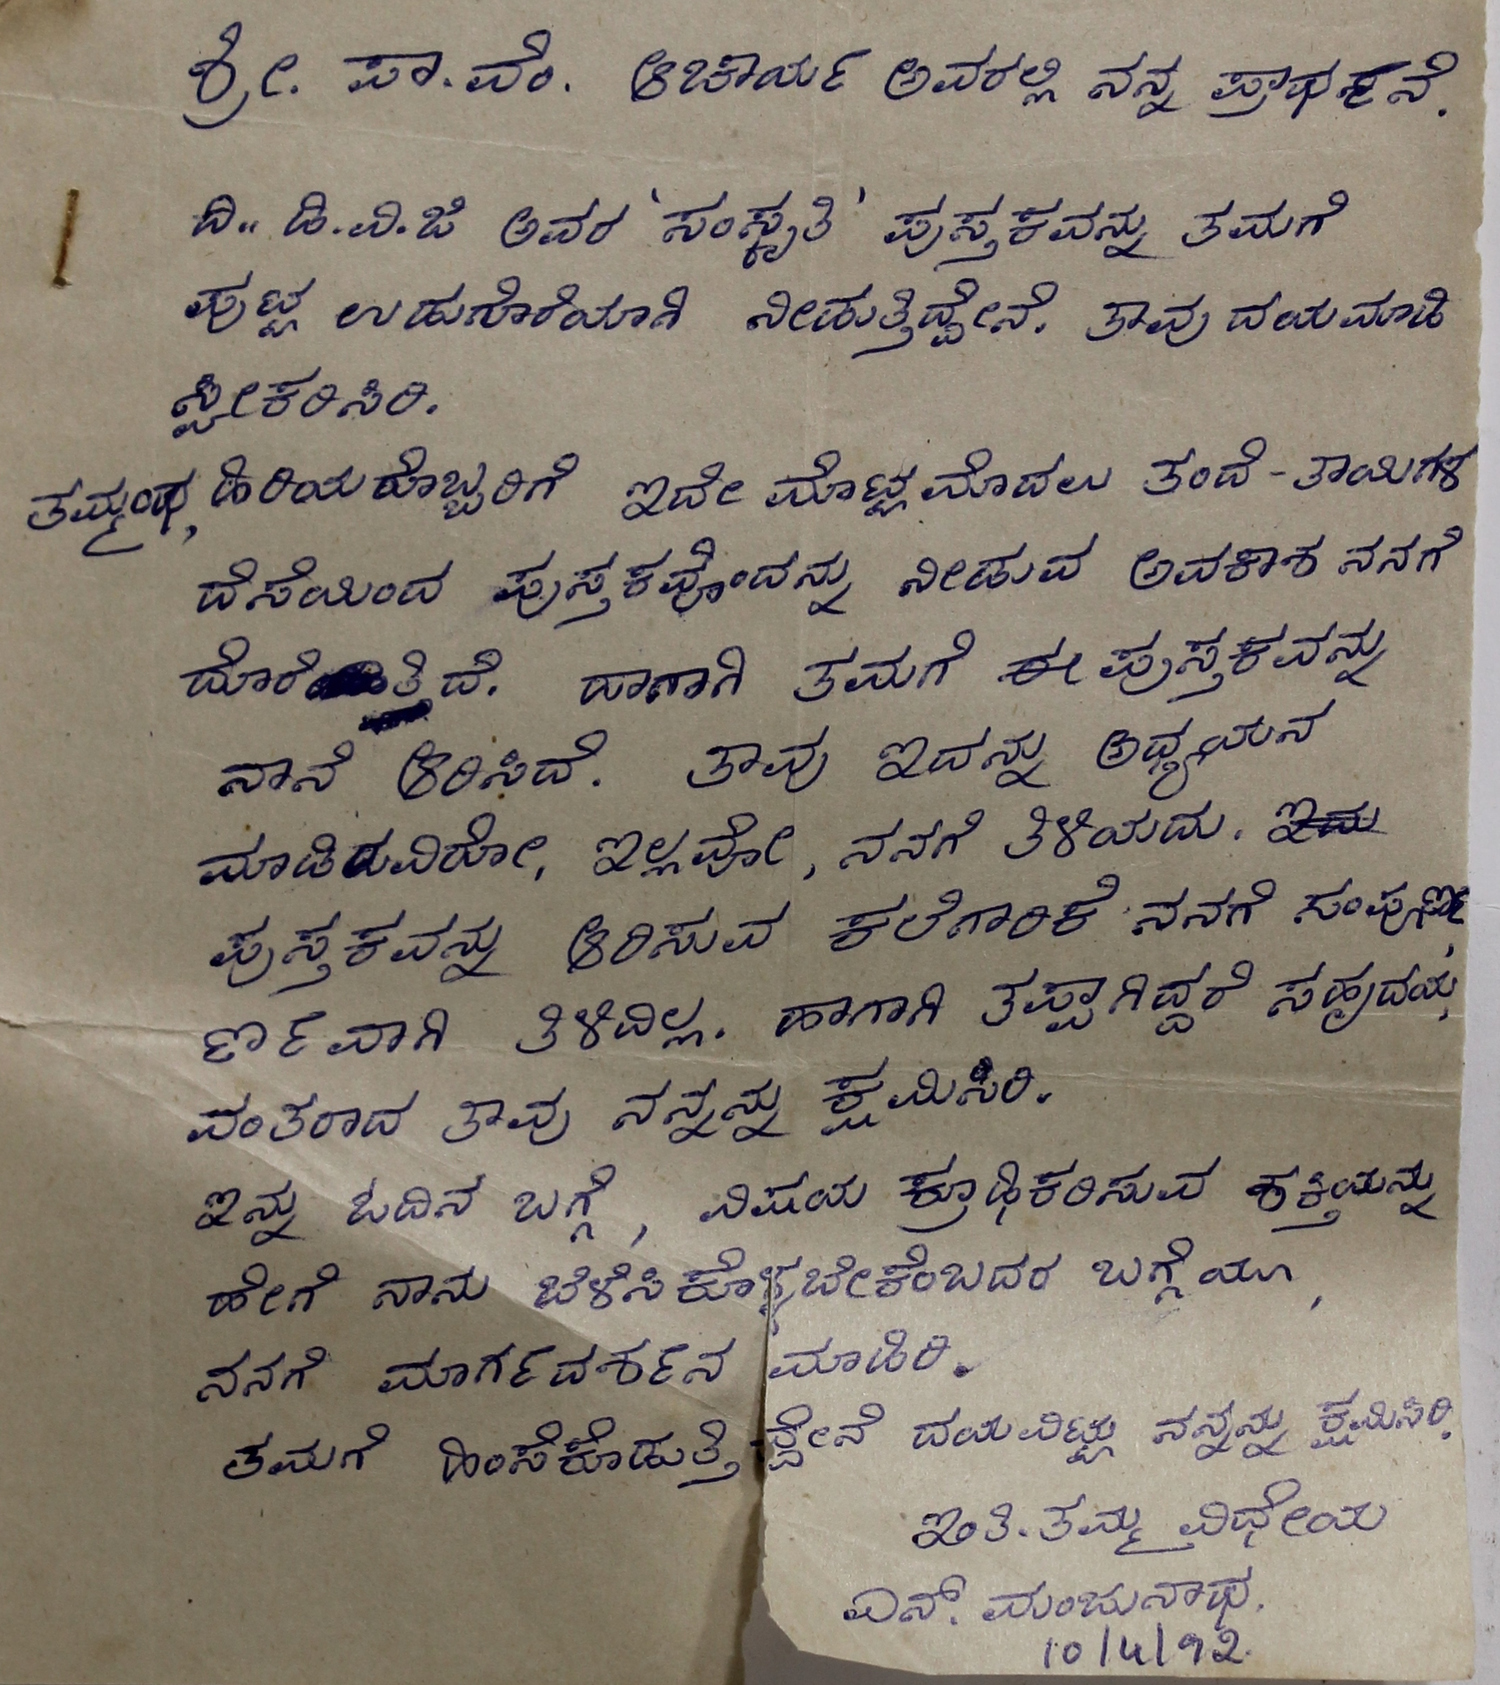 ಶ್ರೀ. ಪಾ.ವೆಂ. ಆಚಾರ್ಯ ಅವರಲ್ಲಿ ನನ್ನ ಪ್ರಾರ್ಥನೆ.
ದಿ.. ಡಿ.ವಿ.ಜಿ ಅವರ 'ಸಂಸ್ಕೃತಿ' ಪುಸ್ತಕವನ್ನು ತಮಗೆ
ಪುಟ್ಟ ಉಡುಗೊರೆಯಾಗಿ ನೀಡುತ್ತಿದ್ದೇನೆ. ತಾವು ದಯಮಾಡಿ
ಸ್ವೀಕರಿಸಿರಿ.
ತಮ್ಮಂಥ, ಹಿರಿಯರೊಬ್ಬರಿಗೆ ಇದೇ ಮೊಟ್ಟಮೊದಲು ತಂದೆ-ತಾಯಿಗಳ
ದೆಸೆಯಿಂದ ಪುಸ್ತಕವೊಂದನ್ನು ನೀಡುವ ಅವಕಾಶ ನನಗೆ
ದೊರೆತ್ತಿದೆ. ಹಾಗಾಗಿ ತಮಗೆ ಈ ಪುಸ್ತಕವನ್ನು
ನಾನೆ ಆರಿಸಿದೆ. ತಾವು ಇದನ್ನು ಅಧ್ಯಯನ
ಮಾಡಿರುವಿರೋ, ಇಲ್ಲವೋ, ನನಗೆ ತಿಳಿಯದು. ಇದು
ಪುಸ್ತಕವನ್ನು ಆರಿಸುವ ಕಲೆಗಾರಿಕೆ ನನಗೆ ಸಂಪೂರ್ಣ
ರ್ಣವಾಗಿ ತಿಳಿದಿಲ್ಲ. ಹಾಗಾಗಿ ತಪ್ಪಾಗಿದ್ದರೆ ಸಹೃದಯ,
ವಂತರಾದ ತಾವು ನನ್ನನ್ನು ಕ್ಷಮಿಸಿರಿ.
ಇನ್ನು ಓದಿನ ಬಗ್ಗೆ, ವಿಷಯ ಕ್ರೂಢಿಕರಿಸುವ ಶಕ್ತಿಯನ್ನು
ಹೇಗೆ ನಾನು ಬೆಳೆಸಿಕೊಳ್ಳಬೇಕೆಂಬದರ ಬಗ್ಗೆಯೂ,
ನನಗೆ ಮಾರ್ಗದರ್ಶನ ಮಾಡಿರಿ.
ತಮಗೆ ಹಿಂಸೆಕೊಡುತ್ತಿದ್ದೇನೆ ದಯವಿಟ್ಟು ನನ್ನನ್ನು ಕ್ಷಮಿಸಿರಿ.
ಇಂತಿ. ತಮ್ಮ ವಿಧೇಯ
ಎನ್. ಮಂಜುನಾಥ.
10/4/92